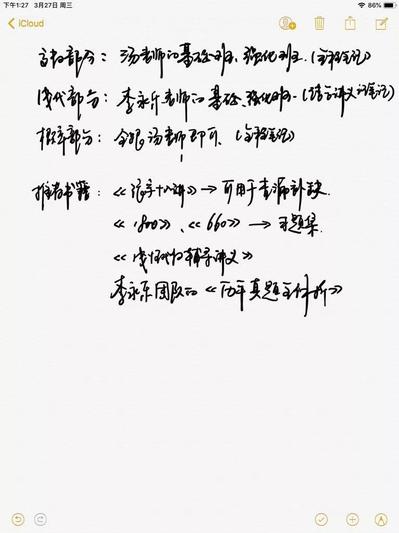 下午1:27 3月27日 周三
86%
iCloud
高数部分：汤老师的基础班、强化班.（全程笔记）
线代部分：李永乐老师的基础、强化班.（结合讲义记笔记）
概率部分：全跟汤老师即可.（全程笔记）
推荐书籍：《张宇十八讲》→可用于查漏补缺.
《1800》、《660》→习题集.
《线性代数辅导讲义》
李永乐团队的《历年真题全解析》